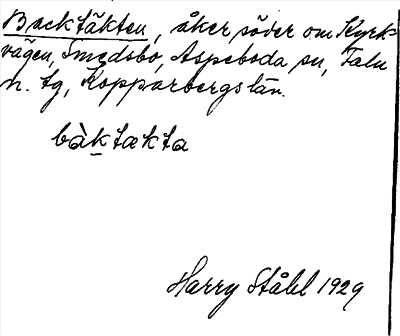 Backtäkten, åker söder om Kyrk-
vägen, Smedsbo, Aspeboda sn, Falu
n. tg, Kopparbergs län.
bàktækta
Harry Ståhl 1929